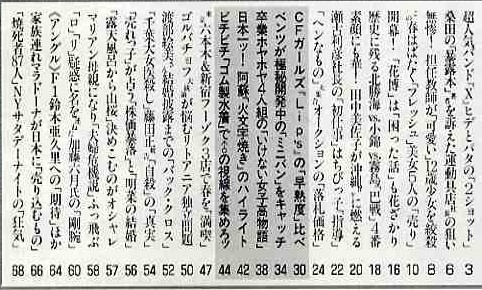 超人気バンド「X」ヒデとパタの「2ショット」 3
桑田の「暴露本」を訴えた運動具店主の狙い 6
無惨!担任教師が「可愛い」巨瀬少女を絞殺 8
春はばなぐ「フレッシュ」美女5人の「売り」 10
開幕!「花博」は「困った話」も花ざかり 16
歴史に残る北勝海vs.小錦vs.霧島「巴戦」4番 18
素顔にも華!田中美佐子が沖縄に燃える 20
瀬古利彦社長の「初仕事」はちびっ子「指導」 22
「ヘンなもの」オークションの「落札価格」 24
CFガールズ「Lip's」の「早熟度」比べ 30
ベンツが極秘開発中の「ミニバン」をキャッチ 34
卒業ホヤホヤ4人組の「いけない女子高物語」 38
日本一!阿蘇「火文字焼き」のハイライト 42
ピチピチ「ゴム製水着」での視線を集めろッ 44
六本木&新宿フーゾク3店で春を「満喫」 47
ゴルバチョフが悩むリトアニア独立問題 50
渡部絵美、結婚披露までの「バック・クロス」 52
「千葉大女医殺し」藤田正「自殺」の「真実」 54
「売れっ子」が占う「株価暴落」と「明菜の結婚」 56
「露天風呂から山桜」決めこむのがオシャレ 57
マリアン「母親になり」「夫婦危機説」ふっ飛ぶ 58
「ロ」リ「疑惑に名を」加藤六月氏の「剛腕」 60
〈アングル〉F1鈴木亜久里への「期待」ほか 64
家族連れマラドーナが日本に「売り込むもの」 66
「焼死者87人」NYサタデーナイトの「狂気」 68